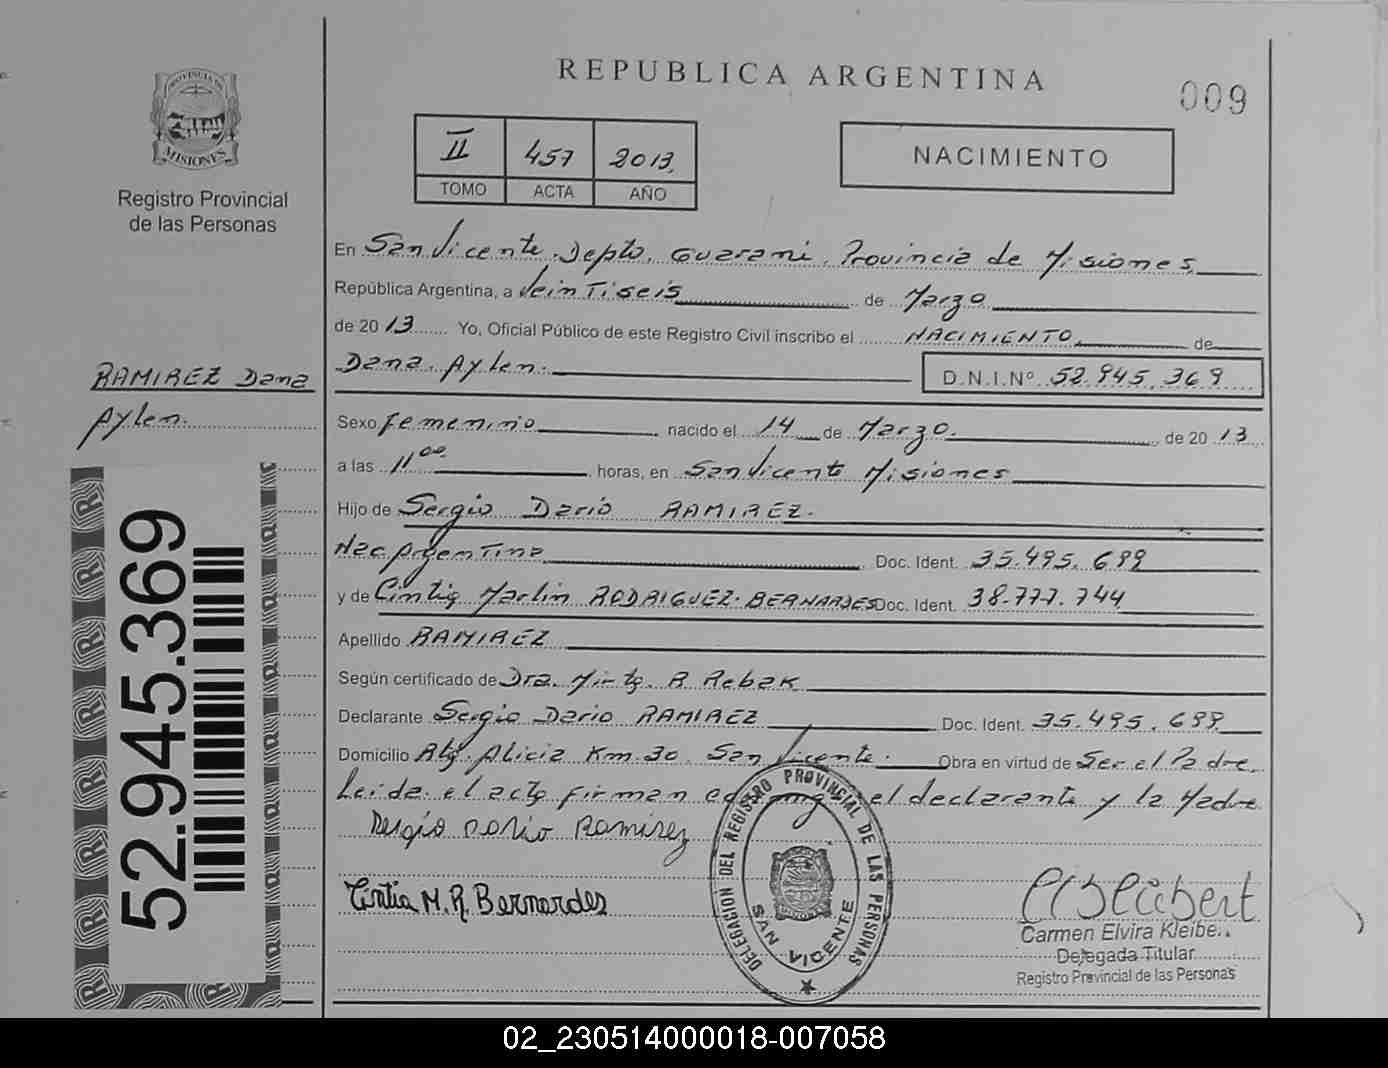 REPUBLICA ARGENTINA
009
PROVINCIA DE
MISIONES
Registro Provincial
de las Personas
II 457 2013
TOMO ACTA AÑO
NACIMIENTO
En San Vicente, Depto. Guarani, Provincia de Misiones
República Argentina, a Veintiseis de Marzo
de 2013 Yo, Oficial Público de este Registro Civil inscribo el NACIMIENTO de
Dana Aylen. D.N.I.Nº 52.945.369
RAMIREZ Dana
Aylen.
Sexo Femenino nacido el 14 de Marzo. de 2013
a las 11 00 horas, en San Vicente Misiones
Hijo de Sergio Dario RAMIREZ.
Nac Argentina Doc. Ident. 35.495.699
y de Cintia Marlin RODRIGUEZ BERNARDES Doc. Ident. 38.777.744
Apellido RAMIREZ
Según certificado de Dra. Mirta R Rebak
Declarante Sergio Dario RAMIREZ Doc. Ident. 35.495.699
Domicilio Alicia Km.30 San Vicente. Obra en virtud de Ser el Padre.
Leida el acta firman el declarante y la Madre
Sergio Dario Ramirez
Cintia M. R. Bernardes
52.945.369
DELEGACION DEL REGISTRO PROVINCIAL DE LAS PERSONAS
SAN VICENTE
Carmen Elvira Kleibe..
Delegada Titular
Registro Provincial de las Personas
02_230514000018-007058